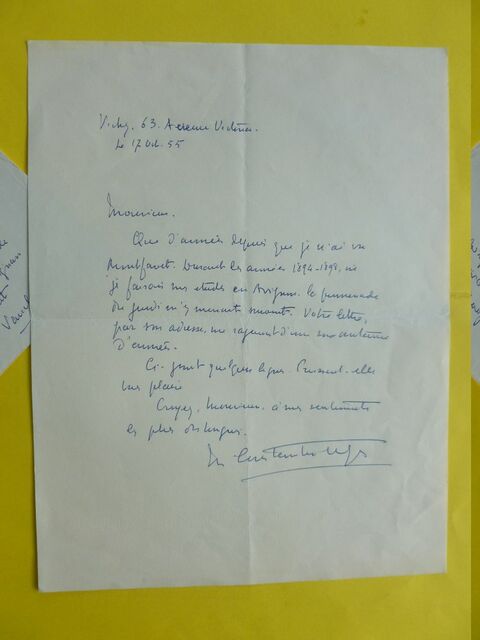 Vichy. 63. Avenue Victoria.
Le 17 Oct. 55
Monsieur.
Que d'années depuis que je n'ai vu
Montfavet. Durant les années 1894-1898, où
je faisais mes études en Avignon. la promenade
du jeudi m'y menait souvent. Votre lettre,
par son adresse, me rajeunit d'une soixantaine
d'années.
Ci-joint quelques lignes. Puissent-elles
vous plaire
Croyez, Monsieur, à mes sentiments
les plus distingués.
de
Vaucl